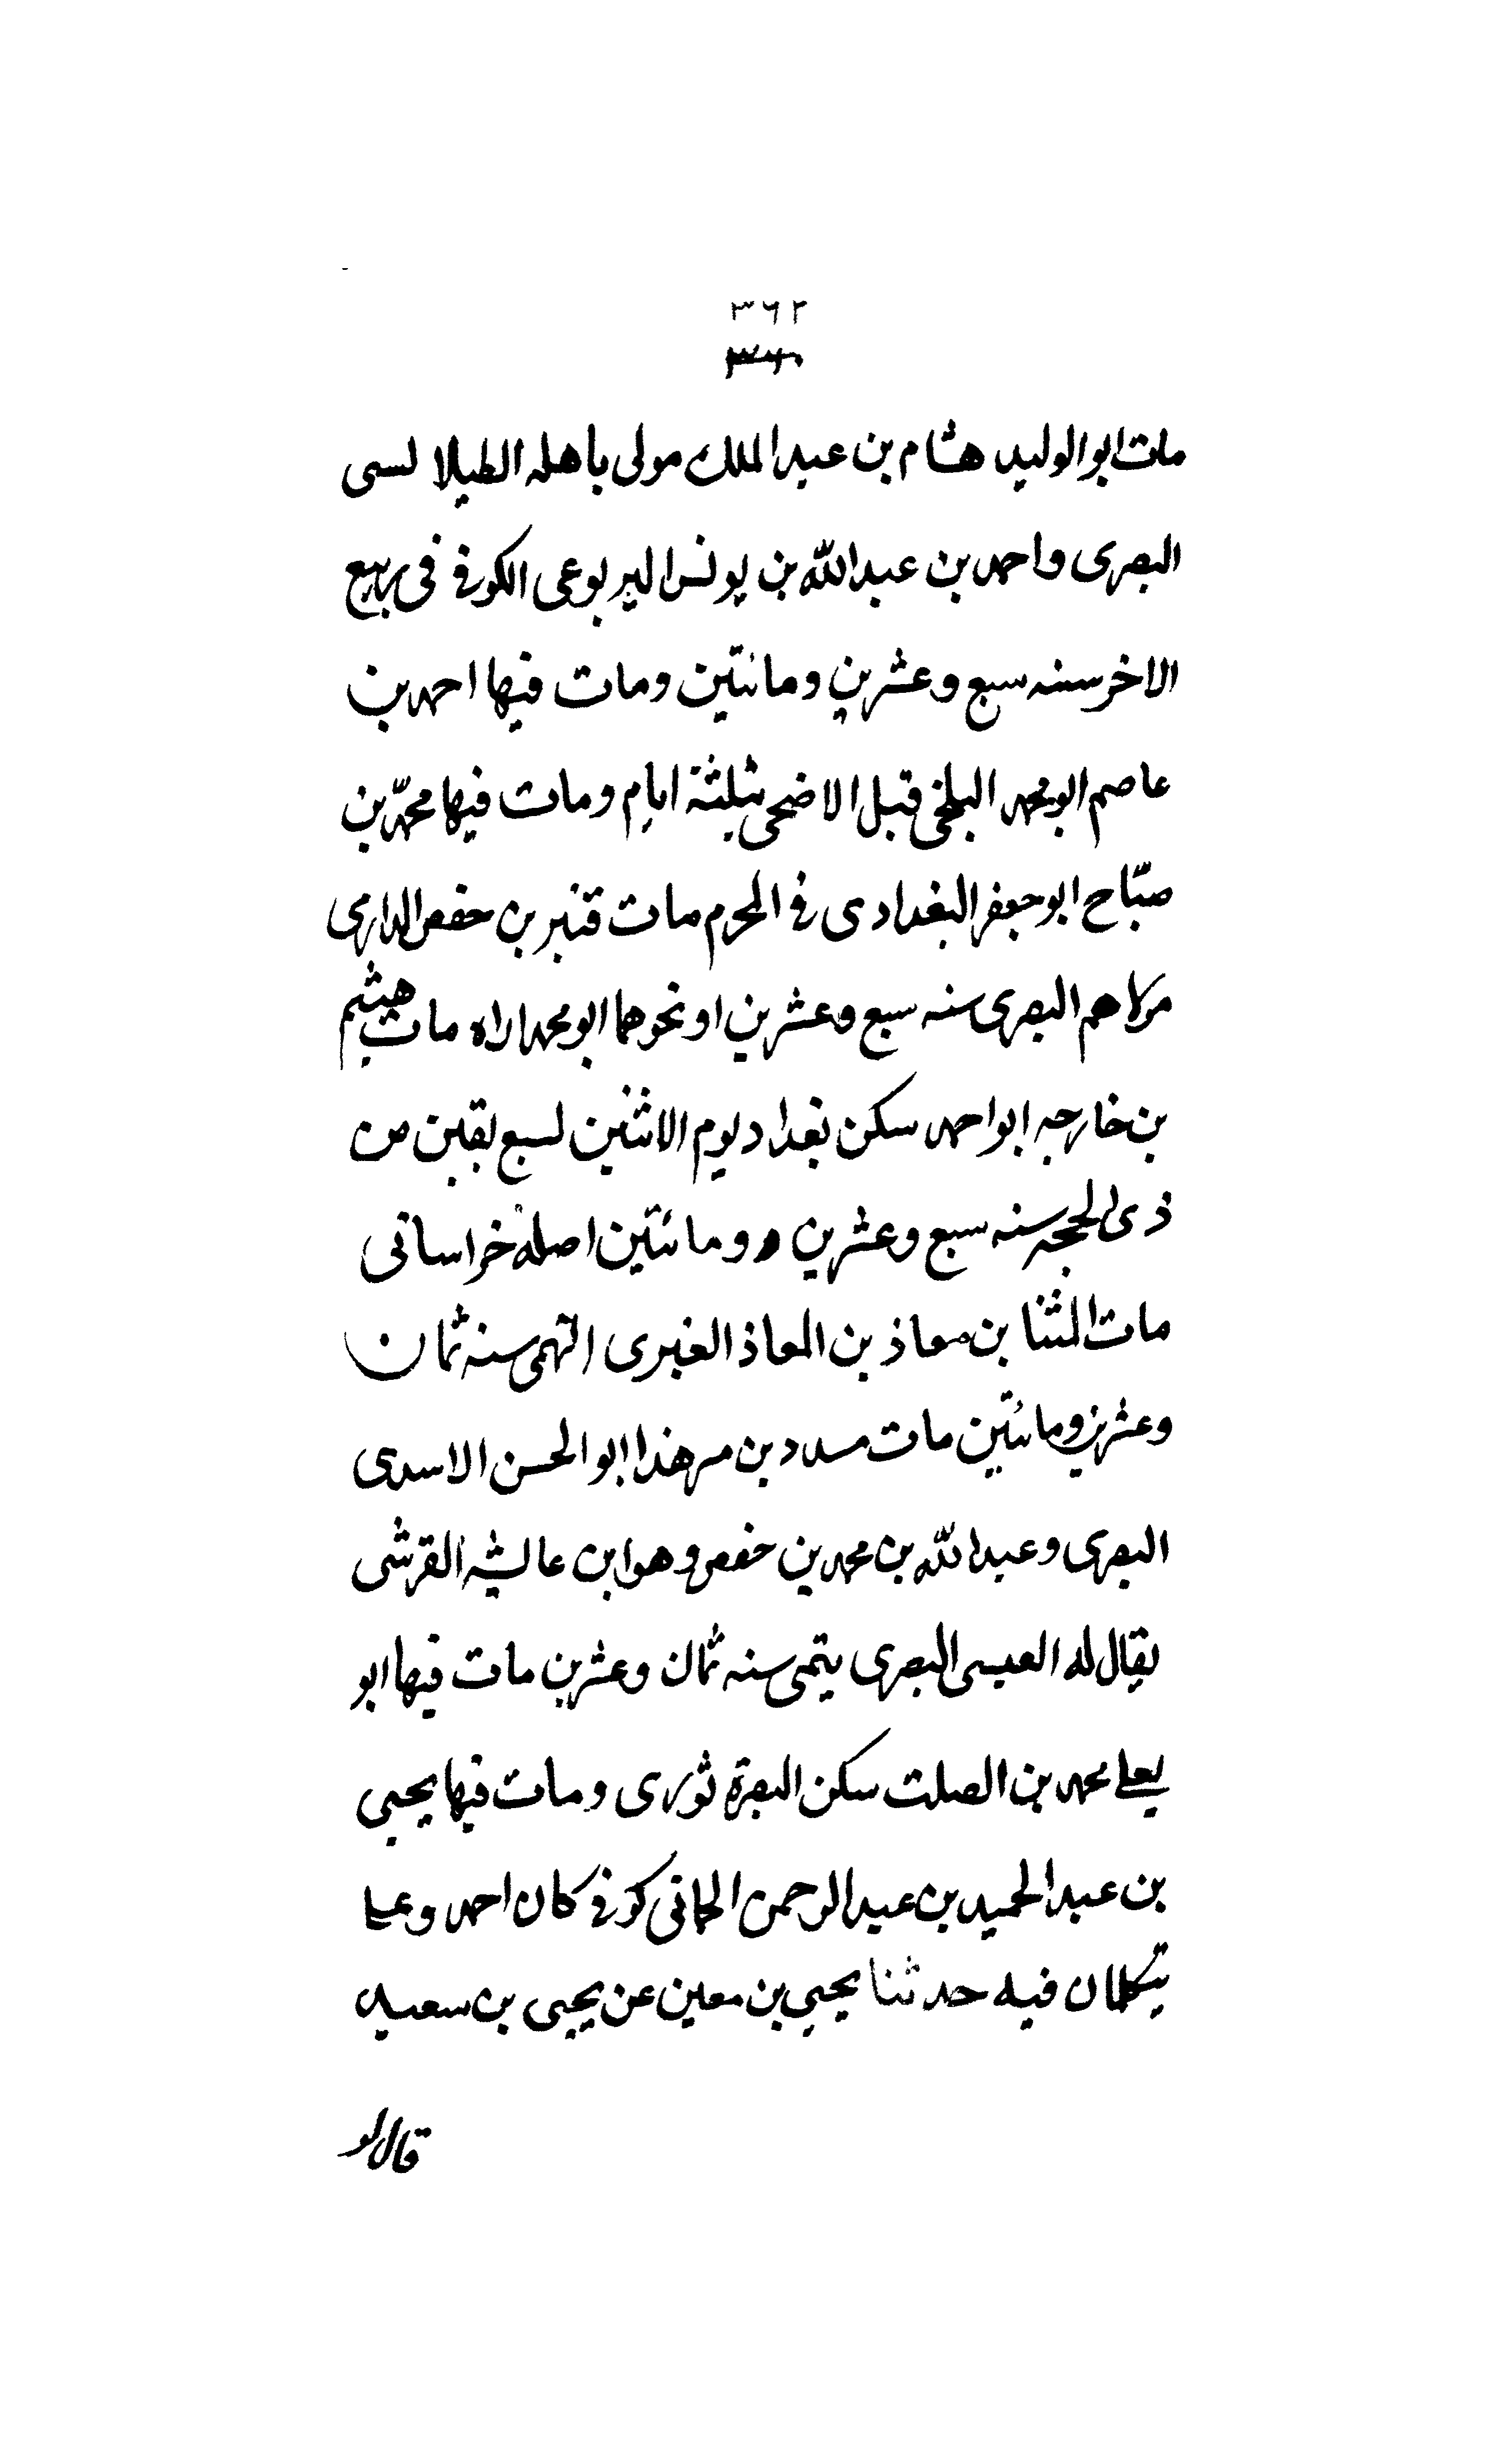 ٣٦٢
٣٦٠
مات ابو الوليد هشام بن عبد الملك مولى باهله الطيلا لسى
البصرى واحمد بن عبد الله بن يونس اليربوعى الكوفى فى ربيع
الاخر سنه سبع وعشرين ومائتين ومات فيها احمد بن
عاصم ابو محمد البلخى قبل الاضحى بثلثة ايام ومات فيها محمّد بن
صبّاح ابو جعفر البغدادى فى المحرم مات قنبر بن حفص الدارمى
البصرى سنه سبع وعشرين او نحوهما ابو محمد اراه مات هيثم
بن خارجه ابو احمد سكن بغداد يوم الاثنين لسبع بقين من
ذى الحجه سنه سبع وعشرين ومائتين اصله خراسانى
مات المثنا بن معاذ بن المعاذ العنبرى التيمى سنه ثمان
وعشرين ومائتين مات مسدد بن مسرهذا ابو الحسن الاسدى
البصرى وعبد الله بن محمد بن حفص وهو ابن عايشه القرشى
يقال له العيسى البصرى يتمى سنه ثمان وعشرين مات فيها ابو
يعلى محمد بن الصلت سكن البصرة ثورى ومات فيها يحيى
بن عبد الحميد بن عبد الرحمن الحمانى كوفى كان احمد وعلى
يتكلمان فيه حدثنا يحيى بن معين عن يحيى بن سعيد
قال لو